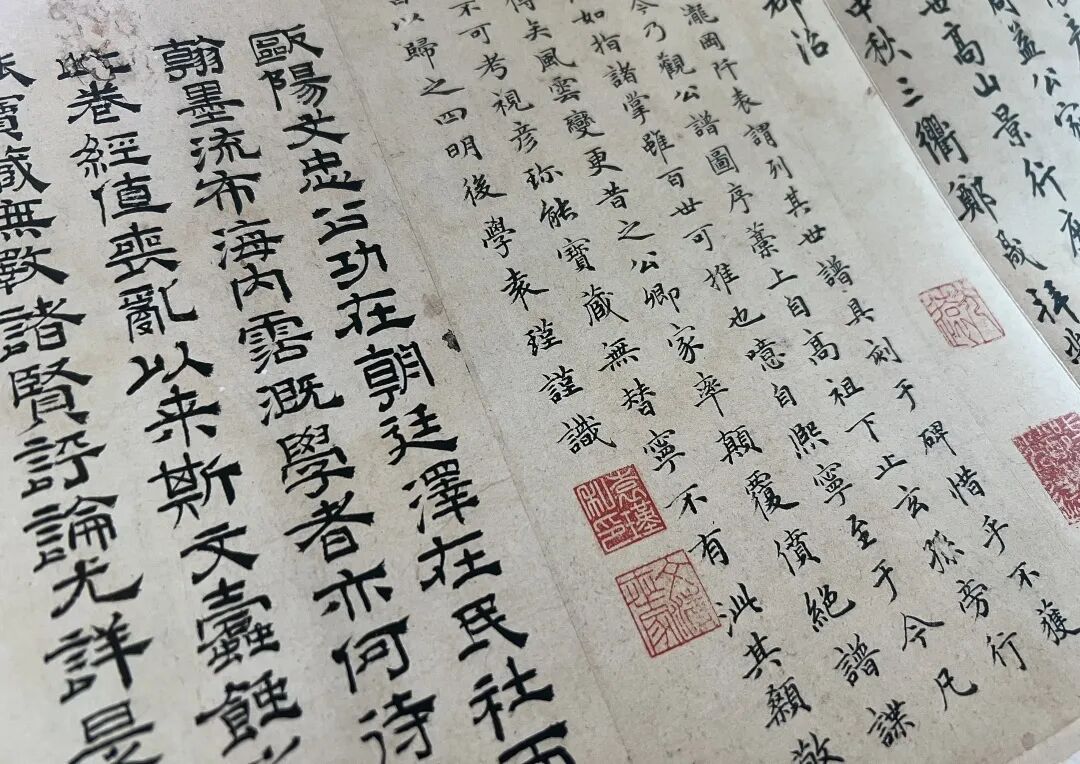 周益公家
世高山景行庶
中秋三衢鄭晟拜
郡治
瀧岡阡表謂列其世譜具刻于碑惜乎不獲
今乃觀公譜圖序藁上自高祖下止玄孫旁行
如指諸掌雖百世可推也噫自熙寧至于今凡
得矣風雲變更昔之公卿家率顛覆僨絕譜諜
不可考視彥珎能寶藏無替寧不有泚其顙敬
以歸之四明後學袁瑾謹識
歐陽文忠公功在朝廷澤在民社而
翰墨流布海內霑溉學者亦何待
此卷經值喪亂以来斯文蠹蝕
寶蔵無斁諸賢評論尤詳是